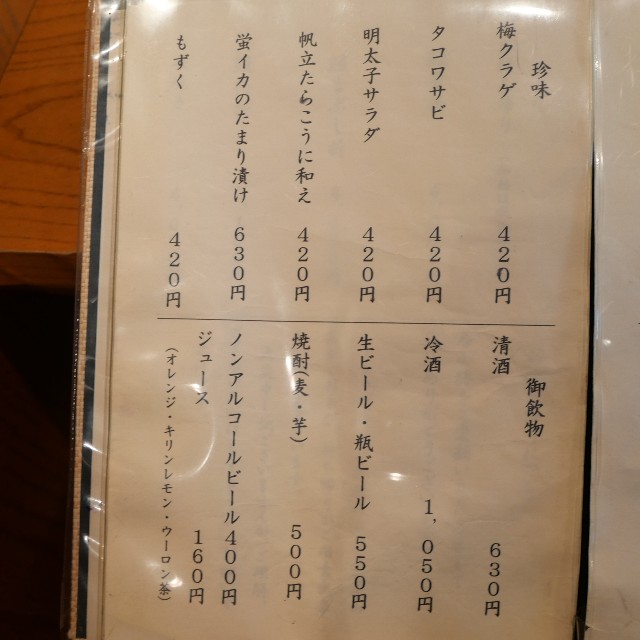 珍味
梅クラゲ 420円
タコワサビ 420円
明太子サラダ 420円
帆立たらこうに和え 420円
蛍イカのたまり漬け 630円
もずく 420円
御飲物
清酒 630円
冷酒 1,050円
生ビール・瓶ビール 550円
焼酎(麦・芋) 500円
ノンアルコールビール 400円
ジュース 160円
(オレンジ・キリンレモン・ウーロン茶)